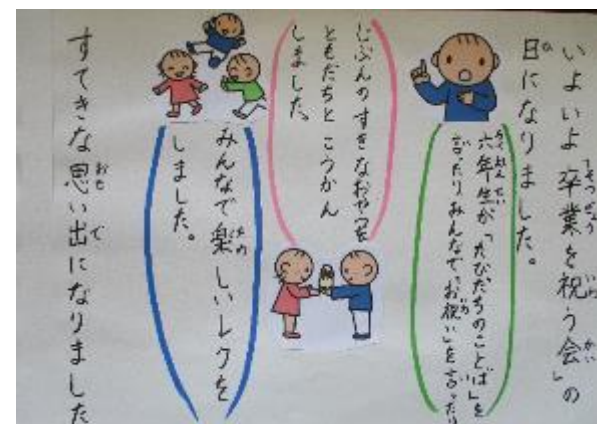 いよいよ「卒業を祝う会」の
日になりました。
六年生が「たびだちのことば」を
言ったりみんなで「お祝い」を言ったり
じぶんのすきなおやつを
ともだちとこうかん
しました。
みんなで楽しいレクを
しました。
すてきな思い出になりました